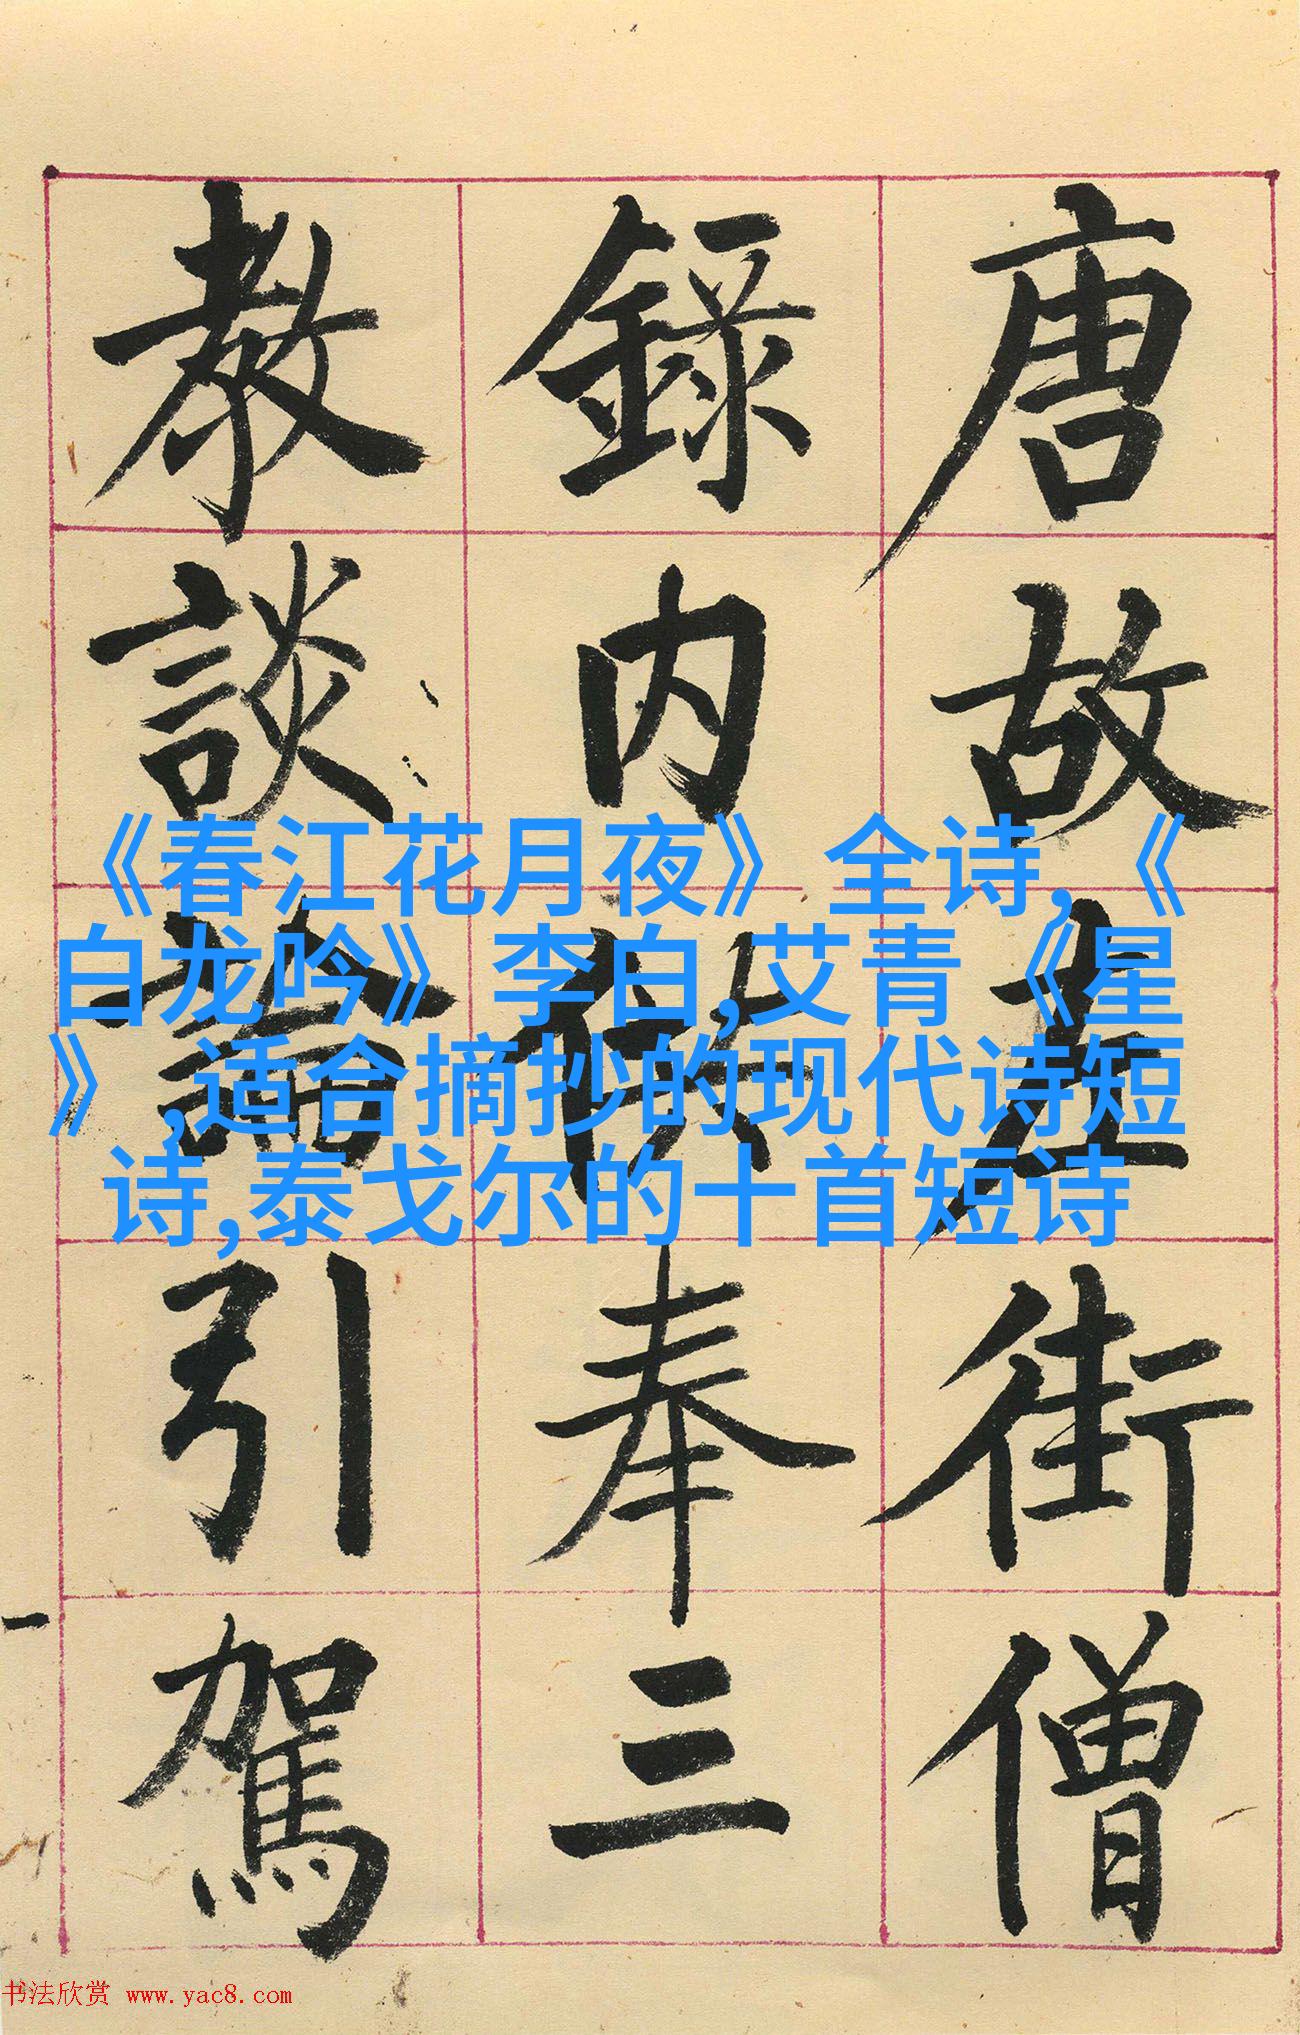 唐故左街僧
錄内供奉三
教談論引駕
《春江花月夜》全诗,《
白龙吟》李白,艾青《星
》,适合摘抄的现代诗短
诗,泰戈尔的十首短诗
书法欣赏 www.yac8.com